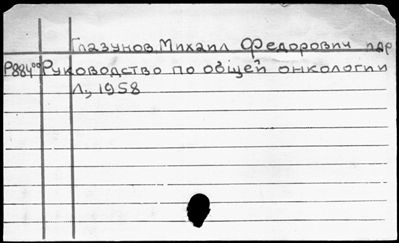 Глазунов Михаил Федорович и др
Р884⁰⁰ Руководство по общей онкологии
Л., 1958